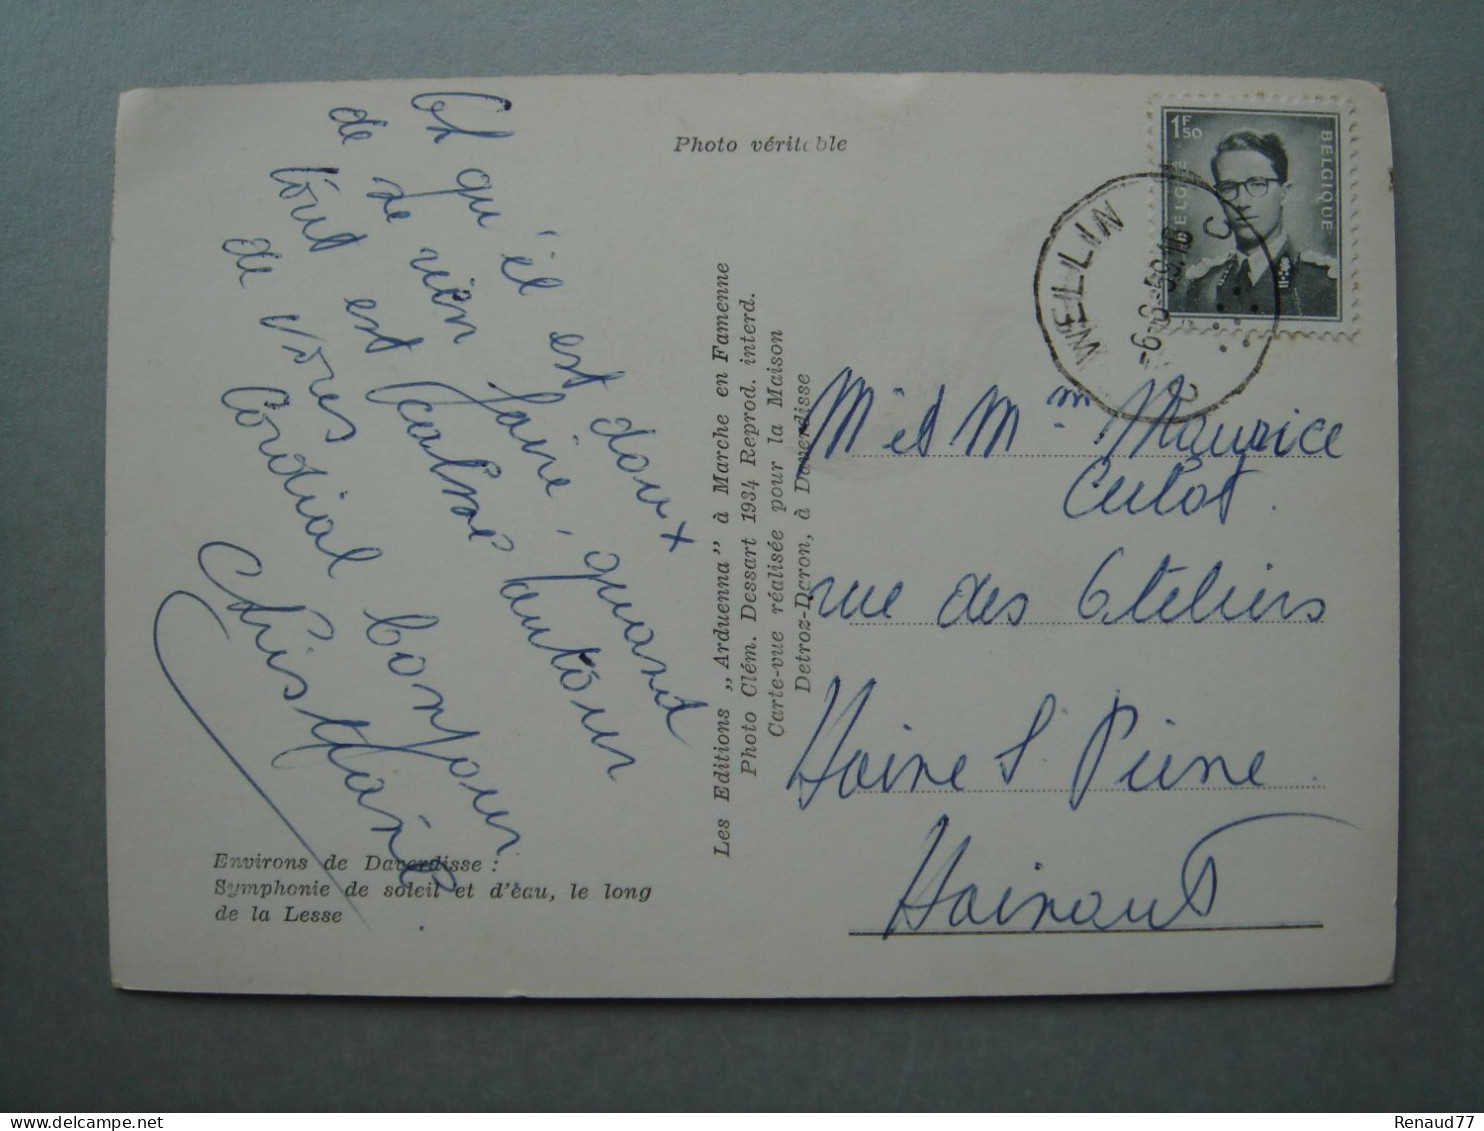 Photo véritable
Ah qu'il est doux
de ne rien faire, quand
tout est calme autour
de vous
Cordial bonjour
Christiane
Environs de Daverdisse :
Symphonie de soleil et d'eau, le long
de la Lesse
Les Editions „Arduenna" à Marche en Famenne
Photo Clém. Dessart 1934 Reprod. interd.
Carte-vue réalisée pour la Maison
Detroz-Daron, à Daverdisse
1F50
BELGIE
BELGIQUE
WELLIN
-9-8-59.16
M et Mm Maurice
Culot
rue des Ateliers
Haine S. Pierre
Hainaut
Renaud77